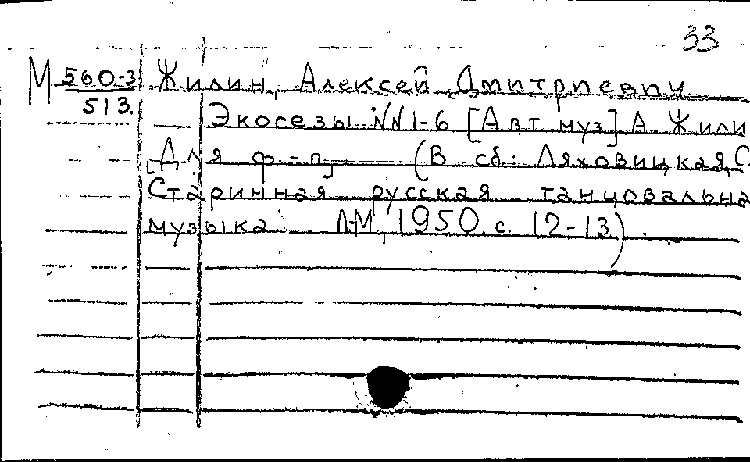 33
М 560-3 Жилин, Алексей Дмитриевич
513. Экосезы NN 1-6 [Авт. муз.] А. Жили
[Для ф-п] (В сб: Ляховицкая, С
Старинная русская танцовальна
музыка Л-М, 1950 с. 12-13)